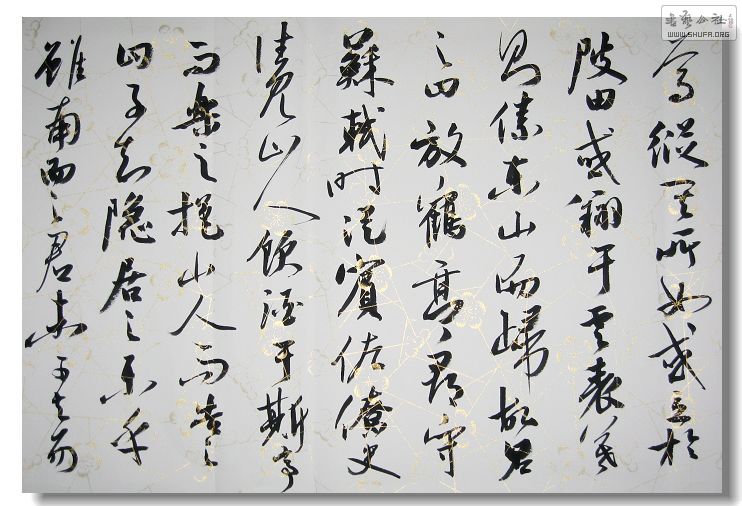 焉縱其所如或立於
陂田或翔于雲表暮
則傃東山而歸故名
之曰放鶴亭郡守
蘇軾時從賓佐僚吏
往見山人飲酒于斯亭
而樂之挹山人而告之
曰子知隱居之樂乎
雖南面之君未可與易
书艺公社
WWW.SHUFA.ORG